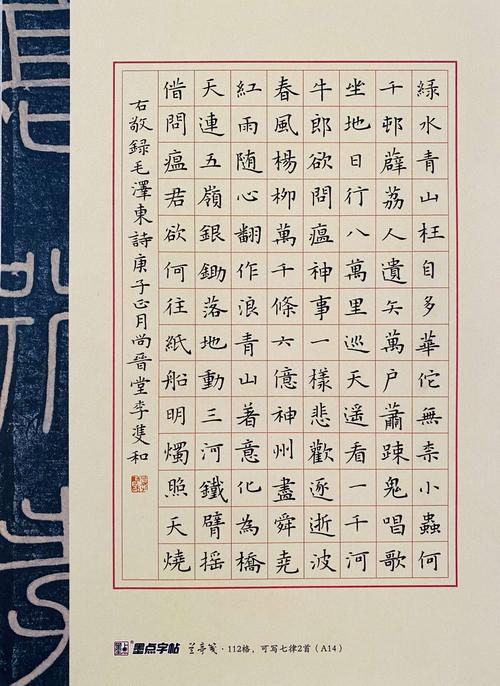 綠水青山枉自多華佗無柰小蟲何
千邨薜荔人遺矢萬戶蕭踈鬼唱歌
坐地日行八萬里巡天遥看一千河
牛郎欲問瘟神事一樣悲歡逐逝波
春風楊柳萬千條六億神州盡舜堯
紅雨随心翻作浪青山著意化為橋
天連五嶺銀鋤落地動三河鐵臂摇
借問瘟君欲何往紙船明燭照天燒
右敬録毛澤東詩庚子正月尚晉堂李隻和
墨点字帖 兰亭笺·112格，可写七律2首（A14）